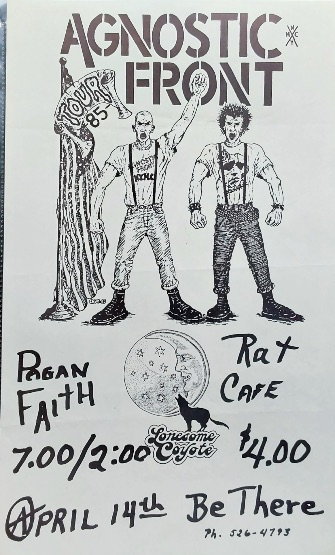 AGNOSTIC
FRONT
TOUR
85
N.Y.H.C.
Pagan
Faith
Rat
Cafe
7.00/2:00
Lonesome
Coyote
$4.00
April 14th
Be There
Ph. 526-4793